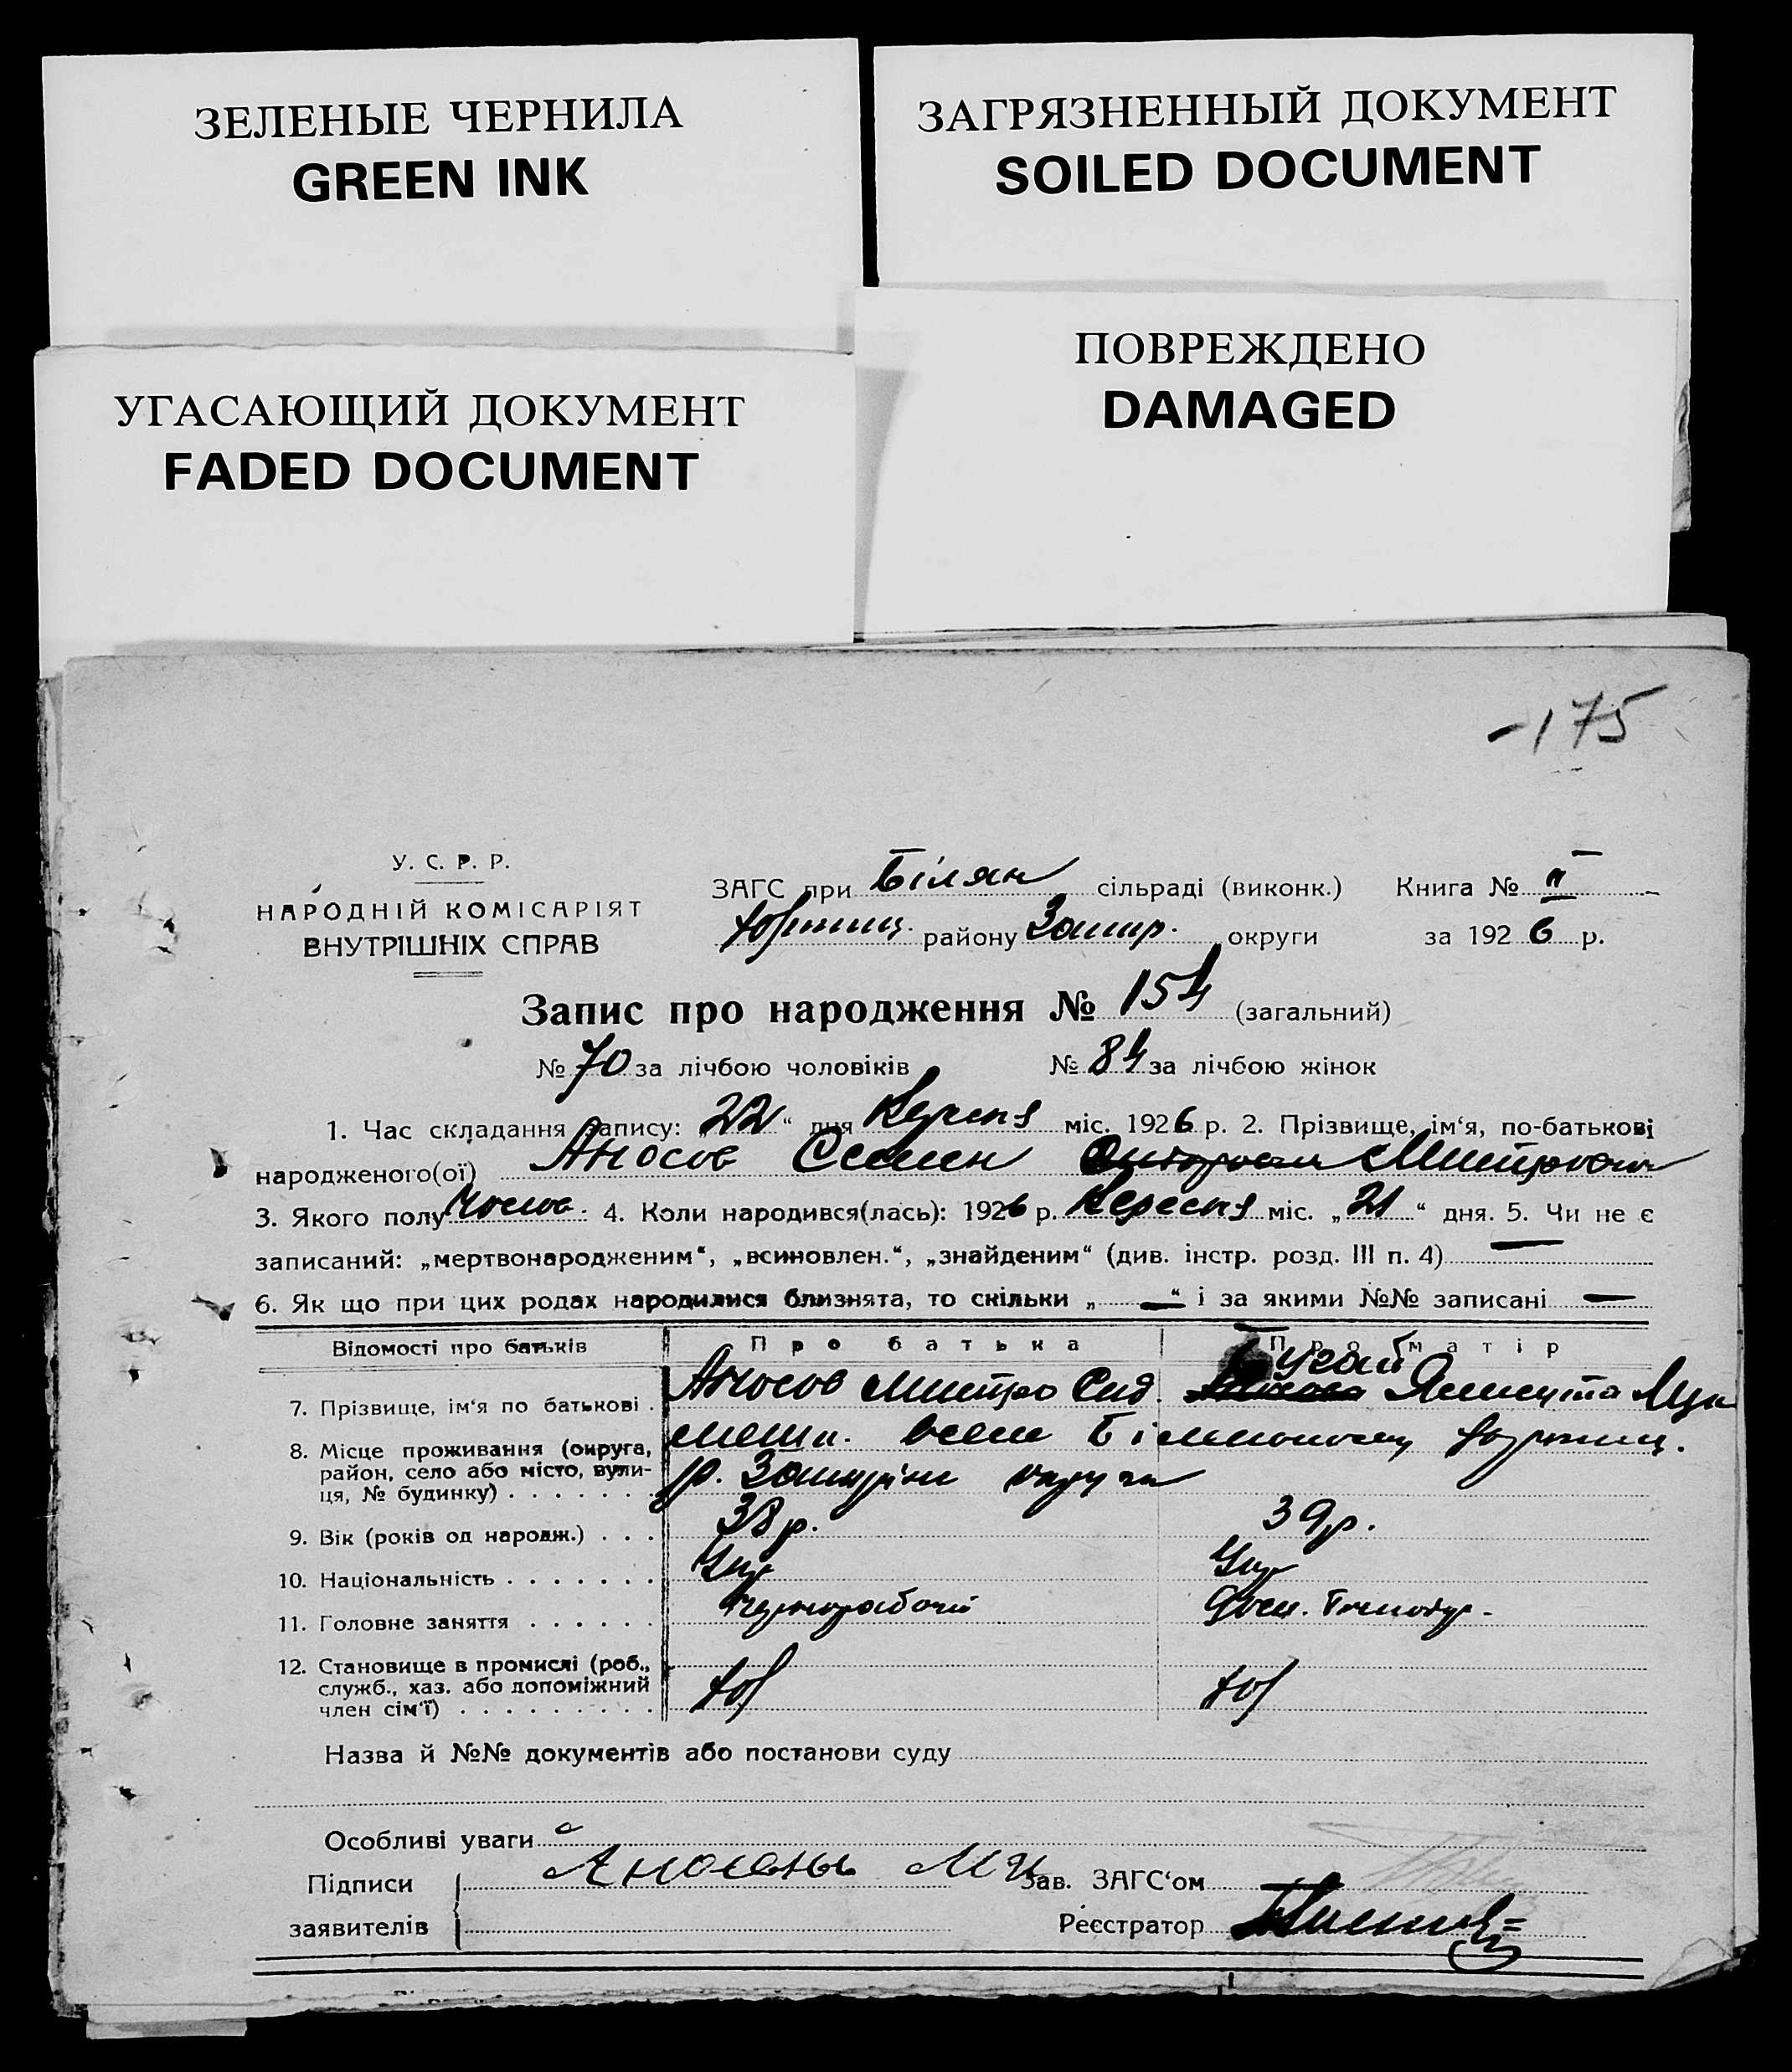 ЗЕЛЕНЫЕ ЧЕРНИЛА
GREEN INK
ЗАГРЯЗНЕННЫЙ ДОКУМЕНТ
SOILED DOCUMENT
УГАСАЮЩИЙ ДОКУМЕНТ
FADED DOCUMENT
ПОВРЕЖДЕНО
DAMAGED
-175
У. С. Р. Р.
НАРОДНІЙ КОМІСАРІЯТ
ВНУТРІШНІХ СПРАВ
ЗАГС при Білян сільраді (виконк.) Книга № II
району Запир. округи за 1926 р.
Запис про народження № 154 (загальний)
№ 70 за лічбою чоловіків № 84 за лічбою жінок
1. Час складання запису: „22“ дня міс. 1926 р. 2. Прізвище, ім‘я, по-батькові
народженого(ої) Аносов Семен Митрович
3. Якого полу чолов. 4. Коли народився(лась): 1926 р. Вересня міс. „21“ дня. 5. Чи не є
записаний: „мертвонародженим“, „всиновлен.“, „знайденим“ (див. інстр. розд. III п. 4) —
6. Як що при цих родах народилися близнята, то скільки „—“ і за якими №№ записані —
Відомості про батьків Про батька Про матір
7. Прізвище, ім‘я по батькові . Аносов Митро Сид.
8. Місце проживання (округа, район, село або місто, вулиця, № будинку) . . . . . . .
р. округа
9. Вік (років од народж.) . . . 38 р. 39 р.
10. Національність . . . . . . . Укр Укр
11. Головне заняття . . . . . . чорноробочий
12. Становище в промислі (роб.,
служб., хаз. або допоміжний
член сім‘ї) . . . . . . . . .
Назва й №№ документів або постанови суду
Особливі уваги
Підписи
заявителів
Зав. ЗАГС‘ом
Реєстратор